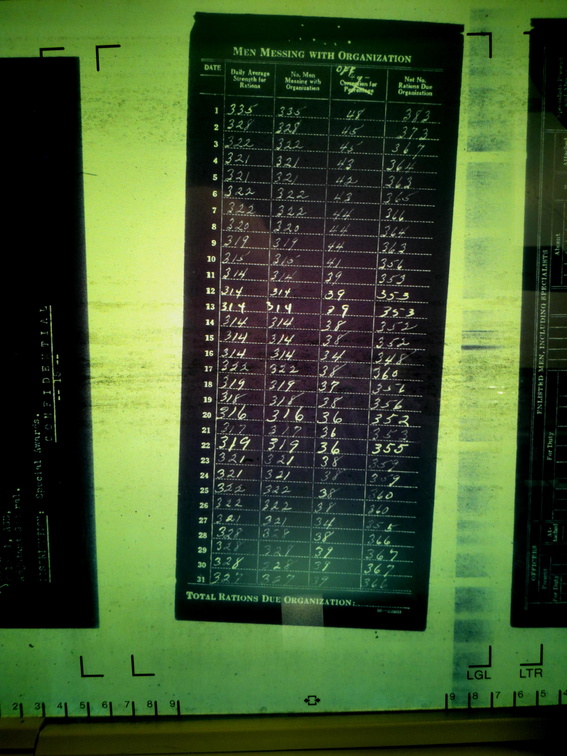 CONFIDENTIAL
Special Awards.
MEN MESSING WITH ORGANIZATION
DATE
Daily Average Strength for Rations
No. Men Messing with Organization
OFF
for
Net No. Rations Due Organization
1 335 335 48 383
2 328 328 45 373
3 322 322 45 367
4 321 321 43 364
5 321 321 42 363
6 322 322 43 365
7 322 322 44 366
8 320 320 44 364
9 319 319 44 363
10 315 315 41 356
11 314 314 39 353
12 314 314 39 353
13 314 314 39 353
14 314 314 38 352
15 314 314 38 352
16 314 314 34 348
17 322 322 38 360
18 319 319 37 356
19 318 318 38 356
20 316 316 36 352
21 317 317 36 353
22 319 319 36 355
23 321 321 38 359
24 321 321 38 359
25 322 322 38 360
26 322 322 38 360
27 321 321 34 355
28 328 328 38 366
29 328 328 39 367
30 328 328 39 367
31 327 327 39 366
TOTAL RATIONS DUE ORGANIZATION:
ENLISTED MEN, INCLUDING SPECIALISTS
Absent
For Duty
OFFICERS
Present
For Duty
LGL LTR
2 3 4 5 6 7 8 9
9 8 7 6 5 4